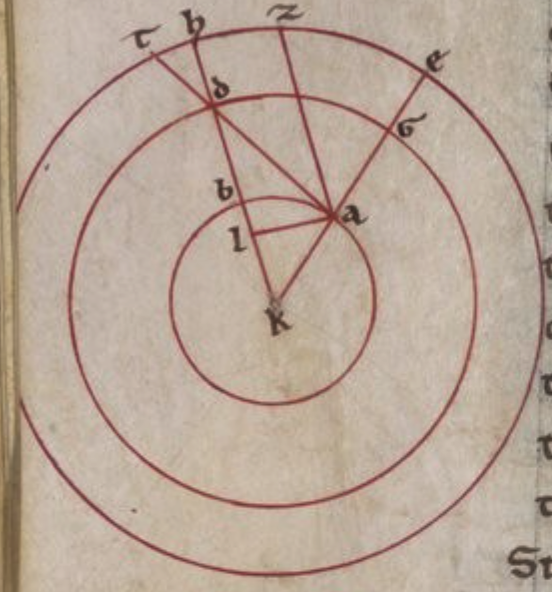 t h z
e
d
g
b
a
l
k
St